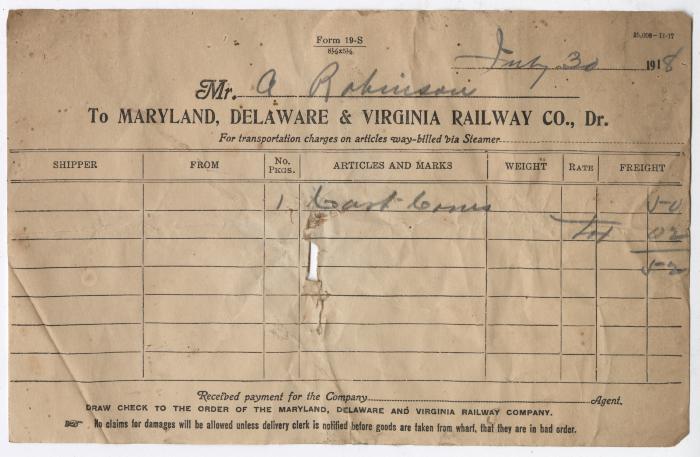 Form 19-S
8½x5½
25,000-11-17
July 30 1918
Mr. A Robinson
To MARYLAND, DELAWARE & VIRGINIA RAILWAY CO., Dr.
For transportation charges on articles way-billed via Steamer
SHIPPER FROM No. PKGS. ARTICLES AND MARKS WEIGHT RATE FREIGHT
1 50
Tax 02
52
Received payment for the Company Agent.
DRAW CHECK TO THE ORDER OF THE MARYLAND, DELAWARE AND VIRGINIA RAILWAY COMPANY.
No claims for damages will be allowed unless delivery clerk is notified before goods are taken from wharf, that they are in bad order.